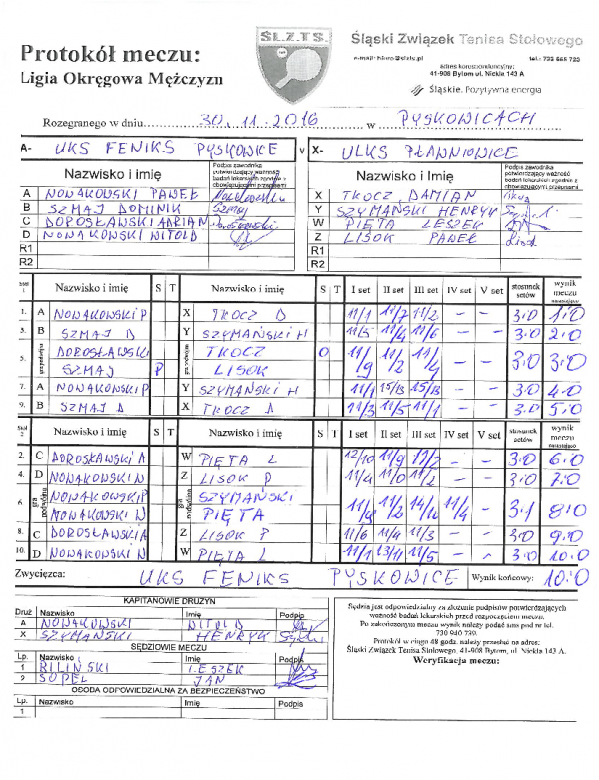 ŚL.Z.T.S.
Protokół meczu:
Ligia Okręgowa Mężczyzn
Śląski Związek Tenisa Stołowego
adres korespondencyjny:
41-908 Bytom ul. Nickla 143 A
Śląskie. Pozytywna energia
Rozegranego w dniu 30.11.2016 w PYSKOWICACH
A- UKS FENIKS PYSKOWICE v X- ULKS PŁAWNIOWICE
Nazwisko i imię Podpis zawodnika potwierdzający ważność badań lekarskich zgodnie z obowiązującymi przepisami Nazwisko i imię Podpis zawodnika potwierdzający ważność badań lekarskich zgodnie z obowiązującymi przepisami
A NOWAKOWSKI PAWEŁ X TKOCZ DAMIAN
B SZMAJ DOMINIK Y SZYMAŃSKI HENRYK
C DOROSŁAWSKI ADRIAN W PIĘTA LESZEK
D NOWAKOWSKI WITOLD Z LISOK PAWEŁ
R1 R1
R2 R2
Stół 1 Nazwisko i imię S T Nazwisko i imię S T I set II set III set IV set V set stosunek setów wynik meczu
1. A NOWAKOWSKI P X TKOCZ D 11/1 11/2 11/2 - - 3:0 1:0
3. B SZMAJ D Y SZYMAŃSKI H 11/5 11/4 11/6 - - 3:0 2:0
5. DOROSŁAWSKI TKOCZ O 11/9 11/2 11/4 - - 3:0 3:0
SZMAJ P LISOK
7. A NOWAKOWSKI P Y SZYMAŃSKI H 11/1 15/13 15/13 - - 3:0 4:0
9. B SZMAJ D X TKOCZ D 11/3 11/5 11/1 - - 3:0 5:0
Stół 2 Nazwisko i imię S T Nazwisko i imię S T I set II set III set IV set V set stosunek setów wynik meczu
2. C DOROSŁAWSKI A W PIĘTA L 12/10 11/9 - - 3:0 6:0
4. D NOWAKOWSKI W Z LISOK P 11/4 11/0 11/2 - - 3:0 7:0
6. gra podwójna NOWAKOWSKI P gra podwójna SZYMAŃSKI 11/2 11/4 - 3:1 8:0
NOWAKOWSKI W PIĘTA
8. C DOROSŁAWSKI A Z LISOK P 11/6 11/4 11/3 - - 3:0 9:0
10. D NOWAKOWSKI W W PIĘTA L 11/1 13/11 11/5 - - 3:0 10:0
Zwycięzca: UKS FENIKS PYSKOWICE Wynik końcowy: 10:0
KAPITANOWIE DRUŻYN
Druż Nazwisko Imię Podpis
A NOWAKOWSKI WITOLD
X SZYMAŃSKI HENRYK
SĘDZIOWIE MECZU
Lp. Nazwisko Imię Podpis
1 BILIŃSKI LESZEK
2 SOPEL JAN
OSOBA ODPOWIEDZIALNA ZA BEZPIECZEŃSTWO
Lp. Nazwisko Imię Podpis
1
Sędzia jest odpowiedzialny za złożenie podpisów potwierdzających
ważność badań lekarskich przed rozpoczęciem meczu.
Po zakończonym meczu wynik należy podać sms pod nr tel.
730 940 739.
Protokół w ciągu 48 godz. należy przesłać na adres:
Śląski Związek Tenisa Stołowego, 41-908 Bytom, ul. Nickla 143 A.
Weryfikacja meczu: